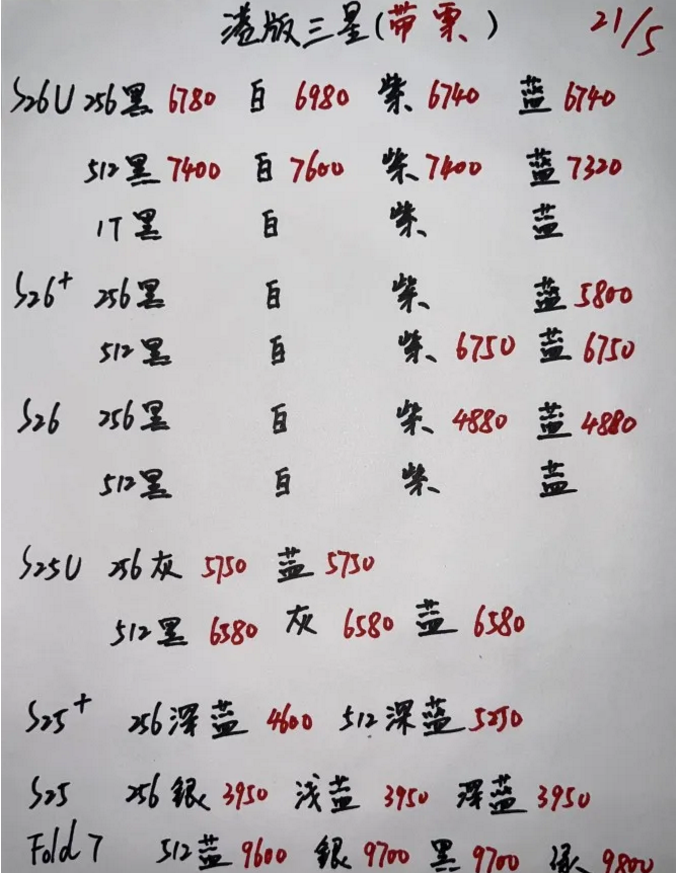 港版三星(带票) 21/5
S26U 256黑 6780 白 6980 紫 6740 蓝 6740
512黑 7400 白 7600 紫 7400 蓝 7320
1T黑 白 紫 蓝
S26+ 256黑 白 紫 蓝 5800
512黑 白 紫 6750 蓝 6750
S26 256黑 白 紫 4880 蓝 4880
512黑 白 紫 蓝
S25U 256灰 5750 蓝 5750
512黑 6580 灰 6580 蓝 6580
S25+ 256深蓝 4600 512深蓝 5250
S25 256銀 3950 浅蓝 3950 深蓝 3950
Fold 7 512蓝 9600 銀 9700 黑 9700 绿 9800